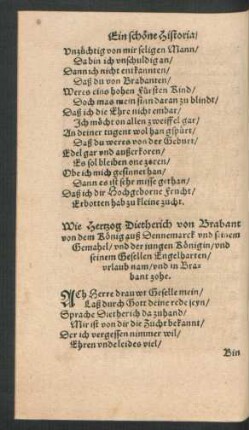 Ein schöne Historia/
Vnzüchtig von mir seligen Mann/
Da bin ich vnschuldig an/
Dann ich nicht entkannten/
Daß du von Brabanten/
Weres eins hohen Fürsten Kind/
Doch was mein sinn daran zu blindt/
Daß ich die Ehre nicht enbar/
Ich möcht on allen zweiffel gar/
An deiner tugent wol han gspürt/
Daß du weres von der Geburt/
Edel gar vnd außerkoren/
Es sol bleiben one zoren/
Obe ich mich gesinnet han/
Dann es ist sehr misse gethan/
Daß ich dir Hochgeborne Frucht/
Erbotten hab zu kleine zucht.
Wie Hertzog Dietherich von Brabant
von dem König auß Dennemarck vnd seinem
Gemahel/ vnd der jungen Königin/ vnd
seinem Gesellen Engelharten/
vrlaub nam/ vnd in Bra-
bant zohe.
ACh Herre drauwt Geselle mein/
Laß durch Gott deine rede seyn/
Sprache Dietherich da zuhand/
Mir ist von dir die Zucht bekannt/
Der ich vergessen nimmer wil/
Ehren vnde leides viel/
Bin